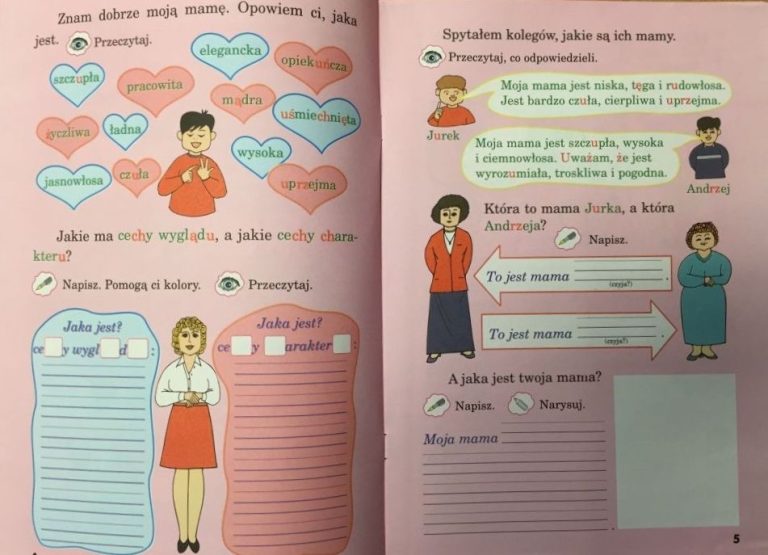 Znam dobrze moją mamę. Opowiem ci, jaka
jest. Przeczytaj.
elegancka
szczupła
pracowita
opiekuńcza
mądra
uśmiechnięta
życzliwa
ładna
wysoka
jasnowłosa
czuła
uprzejma
Jakie ma cechy wyglądu, a jakie cechy chara-
kteru?
Napisz. Pomogą ci kolory. Przeczytaj.
Jaka jest?
ce y wygl d :
Jaka jest?
ce y arakter :
Spytałem kolegów, jakie są ich mamy.
Przeczytaj, co odpowiedzieli.
Moja mama jest niska, tęga i rudowłosa.
Jest bardzo czuła, cierpliwa i uprzejma.
Jurek
Moja mama jest szczupła, wysoka
i ciemnowłosa. Uważam, że jest
wyrozumiała, troskliwa i pogodna.
Andrzej
Która to mama Jurka, a która
Andrzeja?
Napisz.
To jest mama .
(czyja?)
To jest mama .
(czyja?)
A jaka jest twoja mama?
Napisz. Narysuj.
Moja mama
.
5